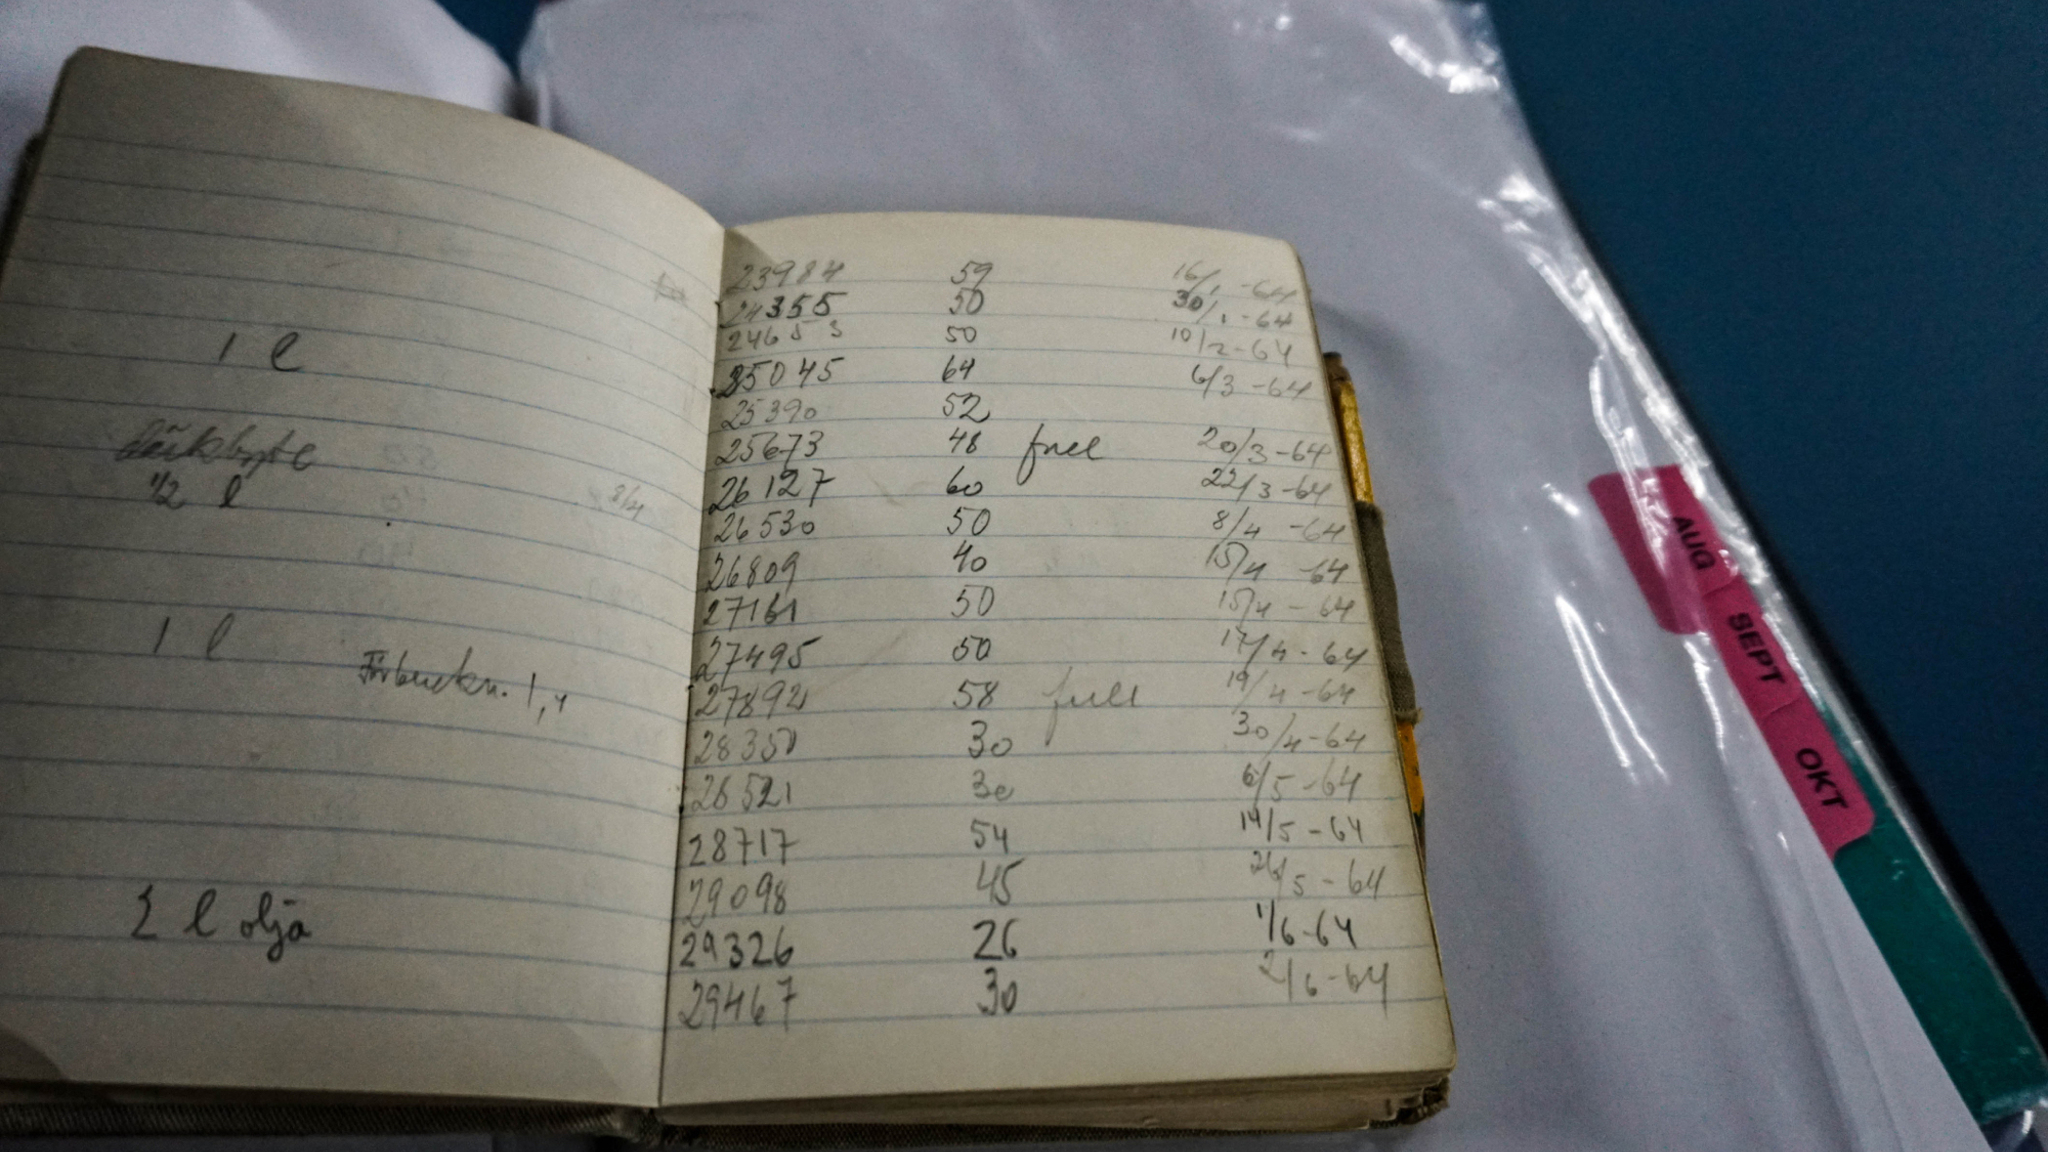 1 l
1/2 l
8/4
1 l
Förbrukn. 1,4
2 l olja
23984 59 16/1 -64
24355 50 30/1 -64
24653 50 10/2-64
25045 64 6/3 -64
25390 52
25673 48 full 20/3-64
26127 60 22/3-64
26530 50 8/4 -64
26809 40 15/4 -64
27161 50 15/4 - 64
27495 50 17/4- 64
27892 58 full 19/4 -64
28350 30 30/4-64
28521 30 6/5 -64
28717 54 14/5 - 64
29098 45 26/5 - 64
29326 26 1/6-64
29467 30 2/6-64
AUG
SEPT
OKT